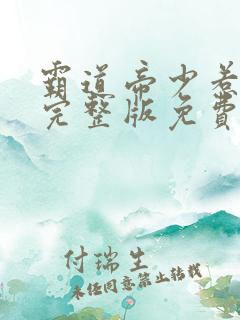 霸道帝少惹
完整版免费
付瑞生
未经同意禁止转载